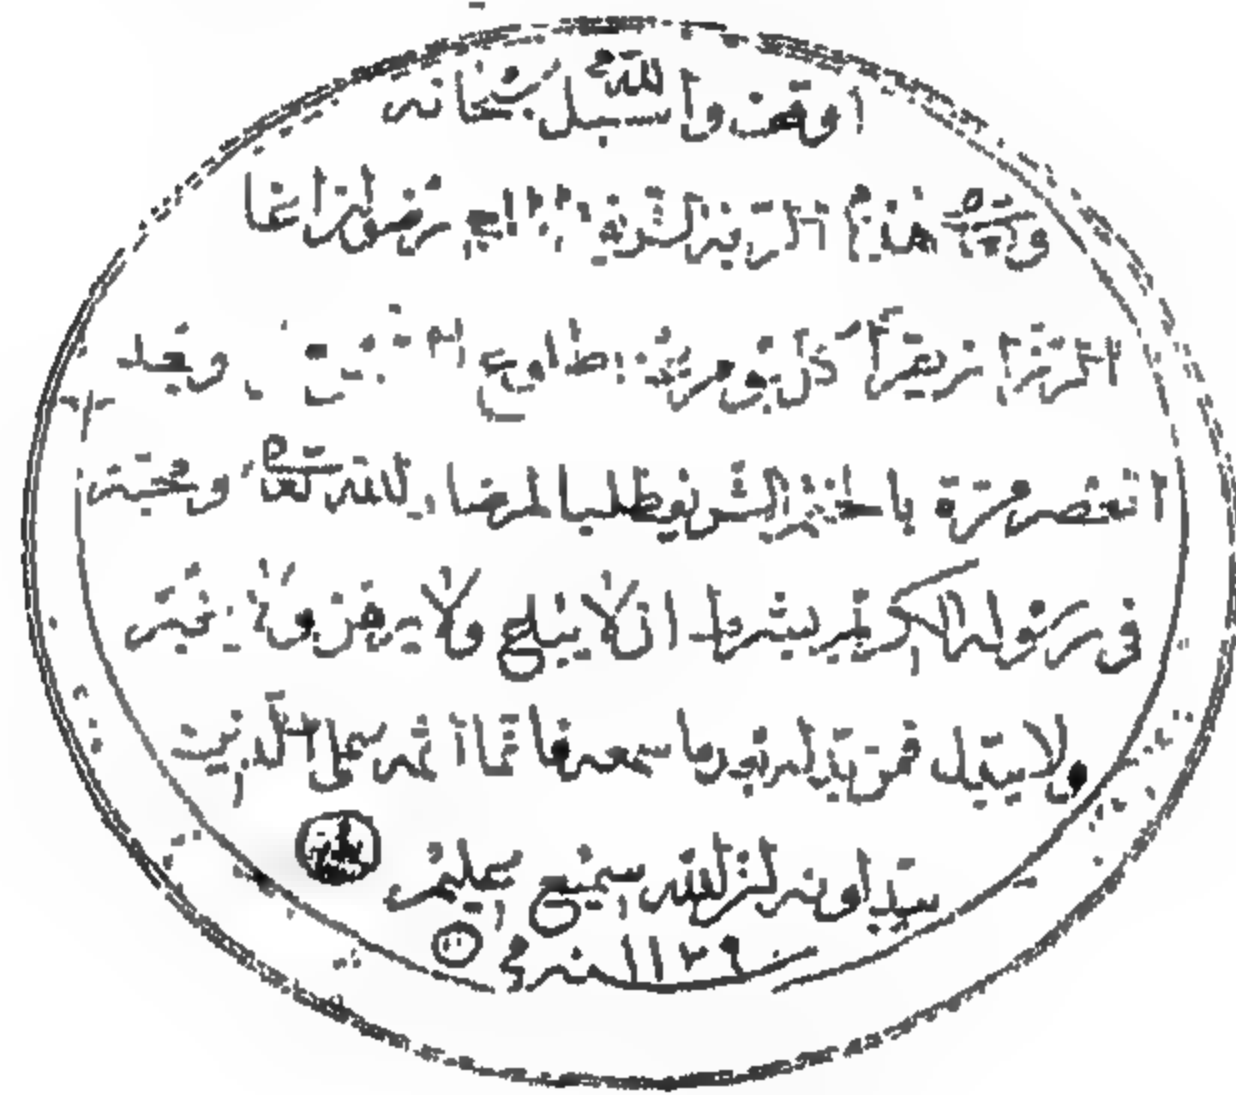 اوقف واسبل لله سبحانه
وتعالى هذه الربعة الشريفة الحاج رضوان اغا
الرزاز يقرأ كل يوم بعد طلوع وبعد
العصر مرة بالحرم الشريف طلبا لمرضات الله تعالى ومحبة
في رسوله الكريم بشرط ان لا يباع ولا يرهن ولا يغير
ولا يبدل فمن بدله بعد ما سمعه فانما اثمه على الذين
يبدلونه ان الله سميع عليم
١١٢٩